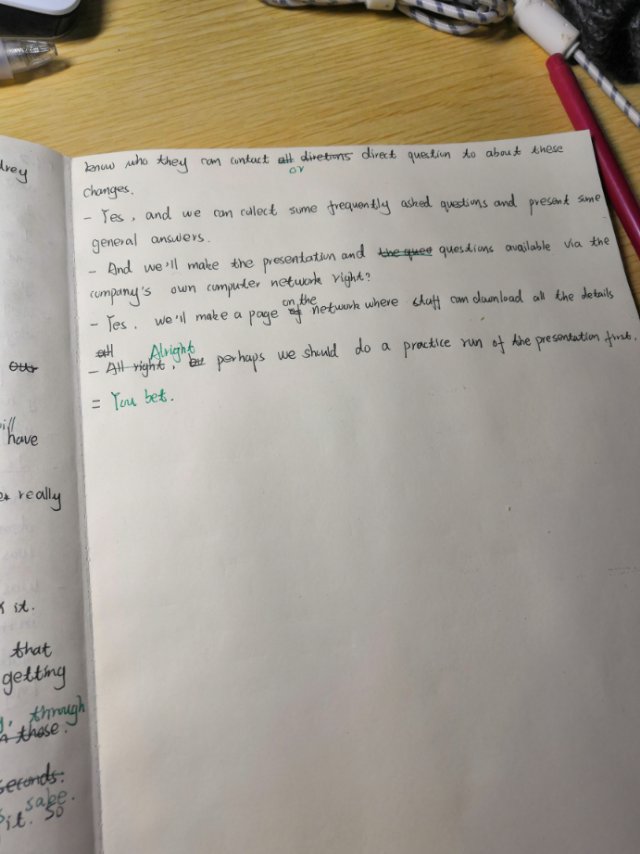 drey
our
have
really
it.
that
getting
through
those.
seconds.
sake.
it. So
know who they can contact all diretions direct question to about these
or
changes.
- Yes, and we can collect some frequently asked questions and present some
general answers.
- And we'll make the presentation and the ques questions available via the
company's own computer network right?
- Yes. we'll make a page of on the network where staff can download all the details
all Alright
- All right, perhaps we should do a practice run of the presentation first.
= You bet.